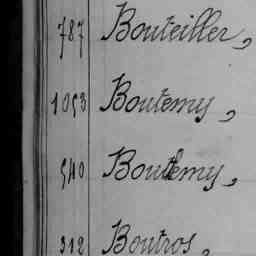 787 Bouteiller,
1053 Boutemy,
540 Boutemy,
312 Boutros,